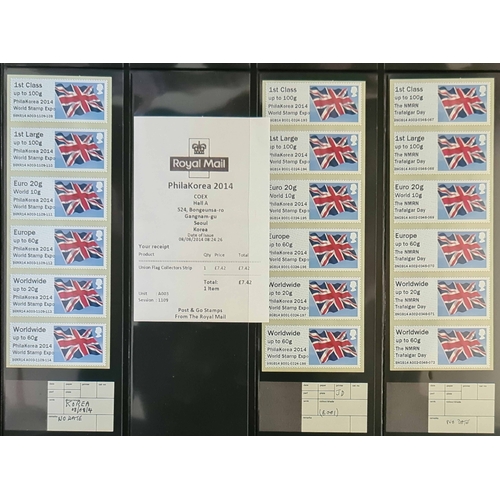 1st Class
up to 100g
PhilaKorea 2014
World Stamp Expo
1st Large
up to 100g
PhilaKorea 2014
World Stamp Expo
Euro 20g
World 10g
PhilaKorea 2014
World Stamp Expo
Europe
up to 60g
PhilaKorea 2014
World Stamp Expo
Worldwide
up to 20g
PhilaKorea 2014
World Stamp Expo
Worldwide
up to 60g
PhilaKorea 2014
World Stamp Expo
KOREA
NO DATE
Royal Mail
PhilaKorea 2014
COEX
Hall A
524, Bongeunsa-ro
Gangnam-gu
Seoul
Korea
Date of Issue
Your receipt
Product Qty Price Total
Union Flag Collectors Strip 1 £7.42 £7.42
Total: £7.42
1 Item
Post & Go Stamps
From The Royal Mail
1st Class
up to 100g
PhilaKorea 2014
World Stamp Expo
1st Large
up to 100g
PhilaKorea 2014
World Stamp Expo
Euro 20g
World 10g
PhilaKorea 2014
World Stamp Expo
Europe
up to 60g
PhilaKorea 2014
World Stamp Expo
Worldwide
up to 20g
PhilaKorea 2014
World Stamp Expo
Worldwide
up to 60g
PhilaKorea 2014
World Stamp Expo
1st Class
up to 100g
The NMRN
Trafalgar Day
1st Large
up to 100g
The NMRN
Trafalgar Day
Euro 20g
World 10g
The NMRN
Trafalgar Day
Europe
up to 60g
The NMRN
Trafalgar Day
Worldwide
up to 20g
The NMRN
Trafalgar Day
Worldwide
up to 60g
The NMRN
Trafalgar Day